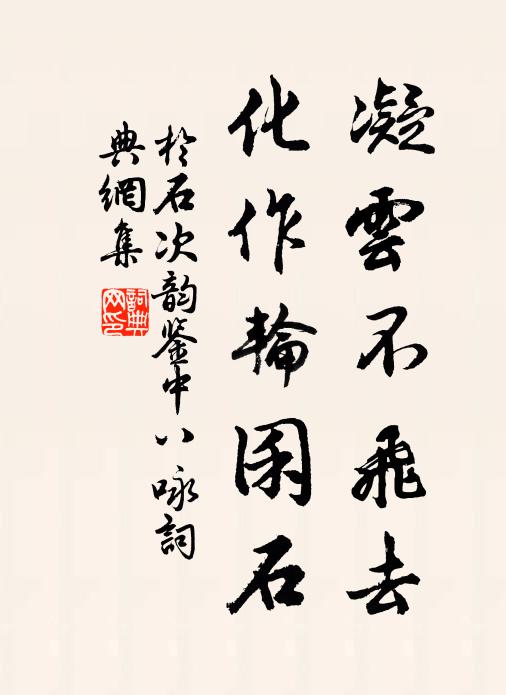 凝雲不飛去
化作輪囷石
於石次韵鉴中八詠詞
典網集
詞典
网印